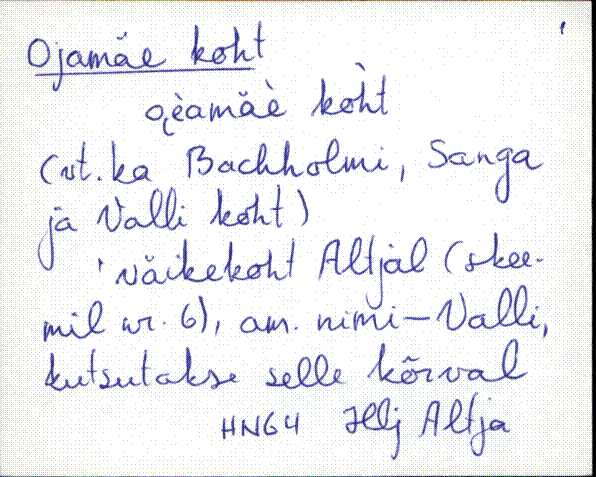 Ojamäe koht
o̭èamäè kòht
(vt. ka Bachholmi, Sanga
ja Valli koht)
'väikekoht Altjal (skee-
mil nr. 6), am. nimi – Valli,
kutsutakse selle kõrval
HN64 Hlj Altja